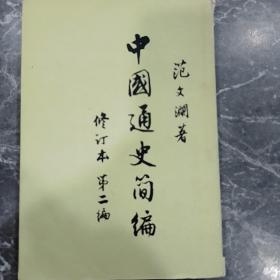 范文澜著
中國通史簡编
修订本 第二编